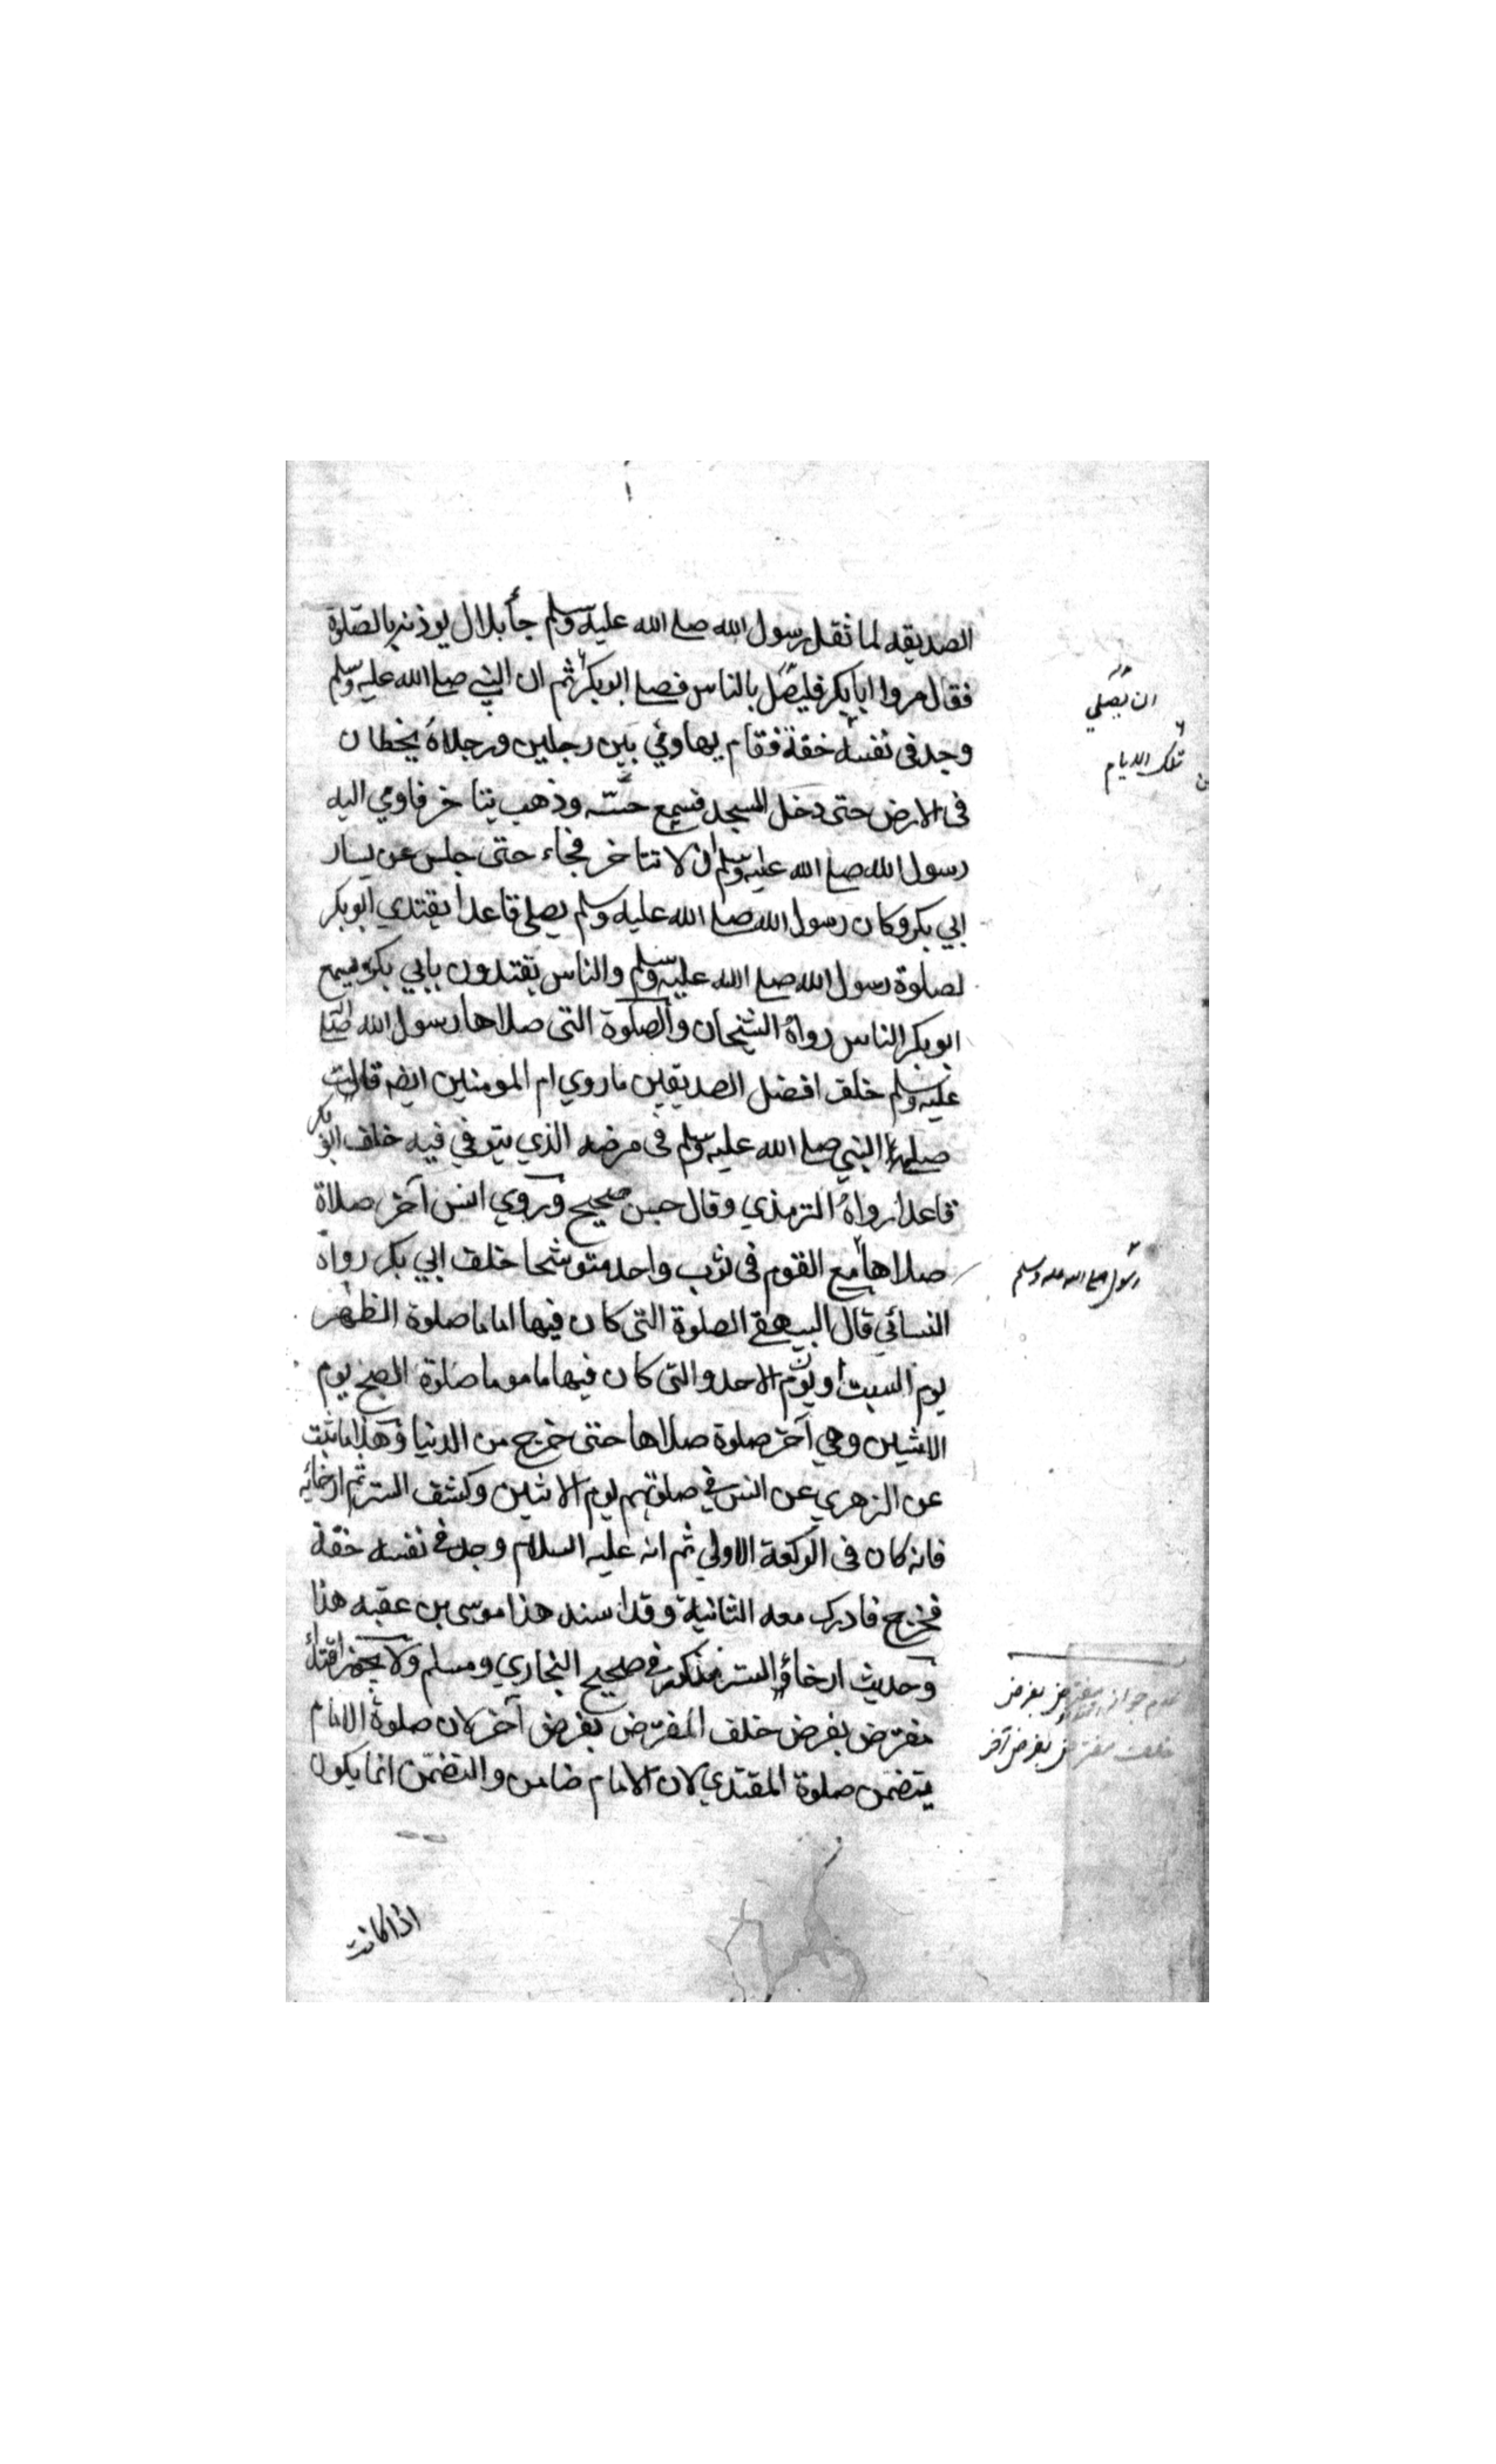 الصديقه لما ثقل رسول الله صلى الله عليه وسلم جأ بلال يوذنه بالصلوة
فقال مروا ابا بكر فليصل بالناس فصلى ابوبكر ثم ان النبي صلى الله عليه وسلم
ان يصلي
تلك الايام
وجد فى نفسه خفة فقام يهاوي بين رجلين ورجلاه يخطان
فى الارض حتى دخل المسجد فسمع حسّه وذهب يتاخر فاومي اليه
رسول الله صلى الله عليه وسلم ان لا تتاخر فجاء حتى جلس عن يسار
ابي بكر وكان رسول الله صلى الله عليه وسلم يصلى قاعدا يقتدي ابوبكر
لصلوة رسول الله صلى الله عليه وسلم والناس يقتدون بابي بكر ويسمع
ابوبكر الناس رواه الشيخان والصلوة التى صلاها رسول الله صلى الله
عليه وسلم خلف افضل الصديقين ما روي ام المومنين ايضه قالت
صلى النبي صلى الله عليه وسلم فى مرضه الذي يتوفي فيه خلف ابو بكر
قاعدا رواه الترمذي وقال حسن صحيح وروي انس آخر صلاة
صلاها مع القوم فى ثوب واحد متوشحا خلف ابي بكر رواه
رسول الله صلى الله عليه وسلم
النسائي قال البيهقي الصلوة التى كان فيها اماما صلوة الظهر
يوم السبت او يوم الاحد والتى كان فيها ماموما صلوة الصبح يوم
الاثنين وهي آخر صلوة صلاها حتى خرج من الدنيا وهذا ما ثبت
عن الزهري عن انس في صلوتهم يوم الاثنين وكشف الستر ثم ارخائه
فانه كان فى الركعة الاولي ثم انه عليه السلام وجد في نفسه خفة
فخرج فادرك معه الثانية وقد اسند هذا موسى بن عقبه هذا
وحديث ارخاؤ الستر مذكور في صحيح البخاري ومسلم ولا يجوز اقتداء
مفترض بفرض خلف المفترض بفرض آخر لان صلوة الامام
يتضمن صلوة المقتدي لان الامام ضامن والتضمن انما يكون
عدم جواز اقتداء مفترض بفرض
خلف مفترض بفرض آخر
اذا كانت